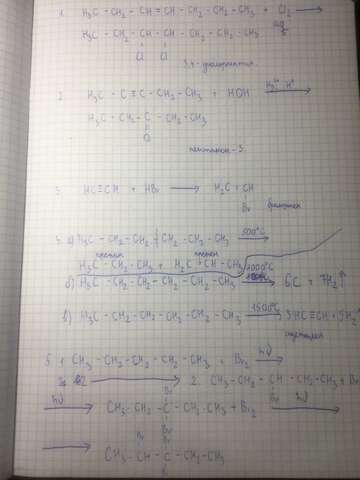 1. H₃C – CH₂ – CH = CH – CH₂ – CH₂ – CH₂ – CH₃ + Cl₂ ⟶
H₃C – CH₂ – CH – CH – CH₂ – CH₂ – CH₂ – CH₃
Cl Cl
2. H₃C – C ≡ C – CH₂ – CH₃ + HOH ⟶
H₃C – CH₂ – C – CH₂ – CH₃
O
пентанон-3
3. HC ≡ CH + HBr ⟶ H₂C = CH
Br
а) H₃C – CH₂ – CH₂ – CH₂ – CH₂ – CH₃ 500°C
H₃C – CH₂ – CH₃ + H₂C = CH – CH₃ 1000°C
б) H₃C – CH₂ – CH₂ – CH₂ – CH₂ – CH₃ ⟶ 6C + 7H₂↑
в) H₃C – CH₂ – CH₂ – CH₂ – CH₂ – CH₃ 1500°C 3HC ≡ CH +
5. 1 CH₃ – CH₂ – CH₂ – CH₂ – CH₃ + Br₂ hν
2. CH₃ – CH₂ – CH – CH₂ – CH₃ + Br
Br
hν ⟶ CH₃ – CH₂ – C – CH₂ – CH₃ + Br₂ hν
Br
Br Br
⟶ CH₃ – CH – C – CH₂ – CH₃
Br